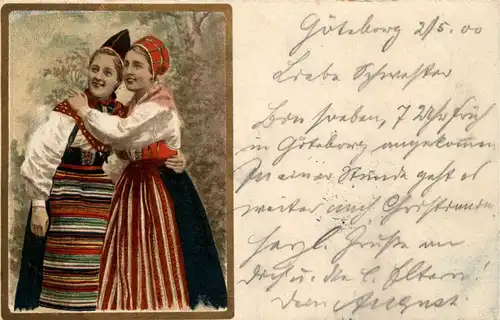 Göteborg 2/5.00
Liebe Schwester
Bin soeben, 7 Uhr früh
in Göteborg angekommen
In einer Stunde geht es
weiter nach
herzl. Grüße an
dich u. die l. Eltern!
Dein August.